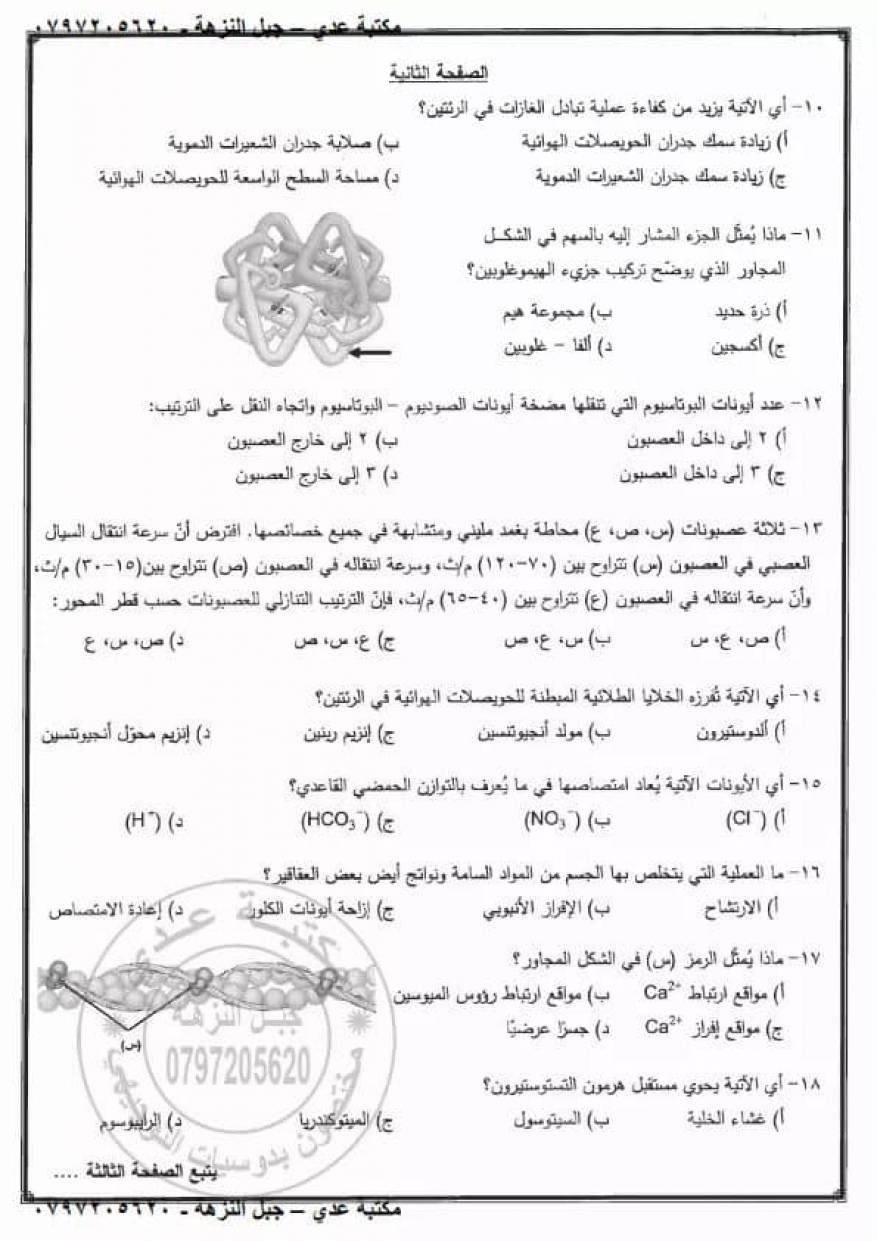 مكتبة عدي – جبل النزهة - ٠٧٩٧٢٠٥٦٢٠
الصفحة الثانية
١٠- أي الآتية يزيد من كفاءة عملية تبادل الغازات في الرئتين؟
أ) زيادة سمك جدران الحويصلات الهوائية ب) صلابة جدران الشعيرات الدموية
ج) زيادة سمك جدران الشعيرات الدموية د) مساحة السطح الواسعة للحويصلات الهوائية
١١- ماذا يُمثّل الجزء المشار إليه بالسهم في الشكل
المجاور الذي يوضّح تركيب جزيء الهيموغلوبين؟
أ) ذرة حديد ب) مجموعة هيم
ج) أكسجين د) ألفا – غلوبين
١٢- عدد أيونات البوتاسيوم التي تنقلها مضخة أيونات الصوديوم – البوتاسيوم واتجاه النقل على الترتيب:
أ) ٢ إلى داخل العصبون ب) ٢ إلى خارج العصبون
ج) ٣ إلى داخل العصبون د) ٣ إلى خارج العصبون
١٣- ثلاثة عصبونات (س، ص، ع) محاطة بغمد مليني ومتشابهة في جميع خصائصها. افترض أنّ سرعة انتقال السيال
العصبي في العصبون (س) تتراوح بين (٧٠-١٢٠) م/ث، وسرعة انتقاله في العصبون (ص) تتراوح بين(١٥-٣٠) م/ث،
وأنّ سرعة انتقاله في العصبون (ع) تتراوح بين (٤٠-٦٥) م/ث، فإنّ الترتيب التنازلي للعصبونات حسب قطر المحور:
أ) ص، ع، س ب) س، ع، ص ج) ع، س، ص د) ص، س، ع
١٤- أي الآتية تُفرزه الخلايا الطلائية المبطنة للحويصلات الهوائية في الرئتين؟
أ) ألدوستيرون ب) مولد أنجيوتنسين ج) إنزيم رينين د) إنزيم محوّل أنجيوتنسين
١٥- أي الأيونات الآتية يُعاد امتصاصها في ما يُعرف بالتوازن الحمضي القاعدي؟
أ) (Cl⁻) ب) (NO₃⁻) ج) (HCO₃⁻) د) (H⁺)
١٦- ما العملية التي يتخلص بها الجسم من المواد السامة ونواتج أيض بعض العقاقير؟
أ) الارتشاح ب) الإفراز الأنبوبي ج) إزاحة أيونات الكلور د) إعادة الامتصاص
١٧- ماذا يُمثّل الرمز (س) في الشكل المجاور؟
أ) مواقع ارتباط Ca²⁺ ب) مواقع ارتباط رؤوس الميوسين
ج) مواقع إفراز Ca²⁺ د) جسرًا عرضيًا
(س)
١٨- أي الآتية يحوي مستقبل هرمون التستوستيرون؟
أ) غشاء الخلية ب) السيتوسول ج) الميتوكندريا د) الرايبوسوم
يتبع الصفحة الثالثة ....
مكتبة عدي
جبل النزهة
0797205620
مختصون بدوسيات التوجيهي
مكتبة عدي – جبل النزهة - ٠٧٩٧٢٠٥٦٢٠